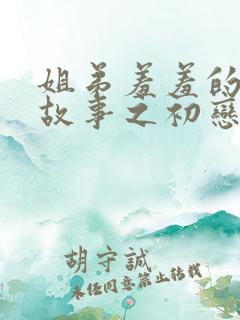 姐弟羞羞的
故事之初戀
胡守誠
未任同意禁止转载